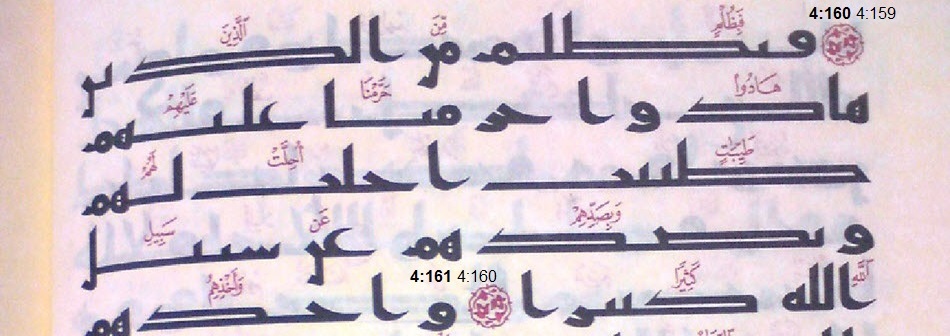 4:160 4:159
فَبِظُلْمٍ مِّنَ ٱلَّذِينَ
فبظلم من الذين
هَادُوا حَرَّمْنَا عَلَيْهِمْ
هادوا حرمنا عليهم
طَيِّبَٰتٍ أُحِلَّتْ لَهُمْ
طيبت احلت لهم
وَبِصَدِّهِمْ عَن سَبِيلِ
وبصدهم عن سبيل
4:161 4:160
ٱللَّهِ كَثِيرًا وَأَخْذِهِمُ
الله كثيرا واخذهم